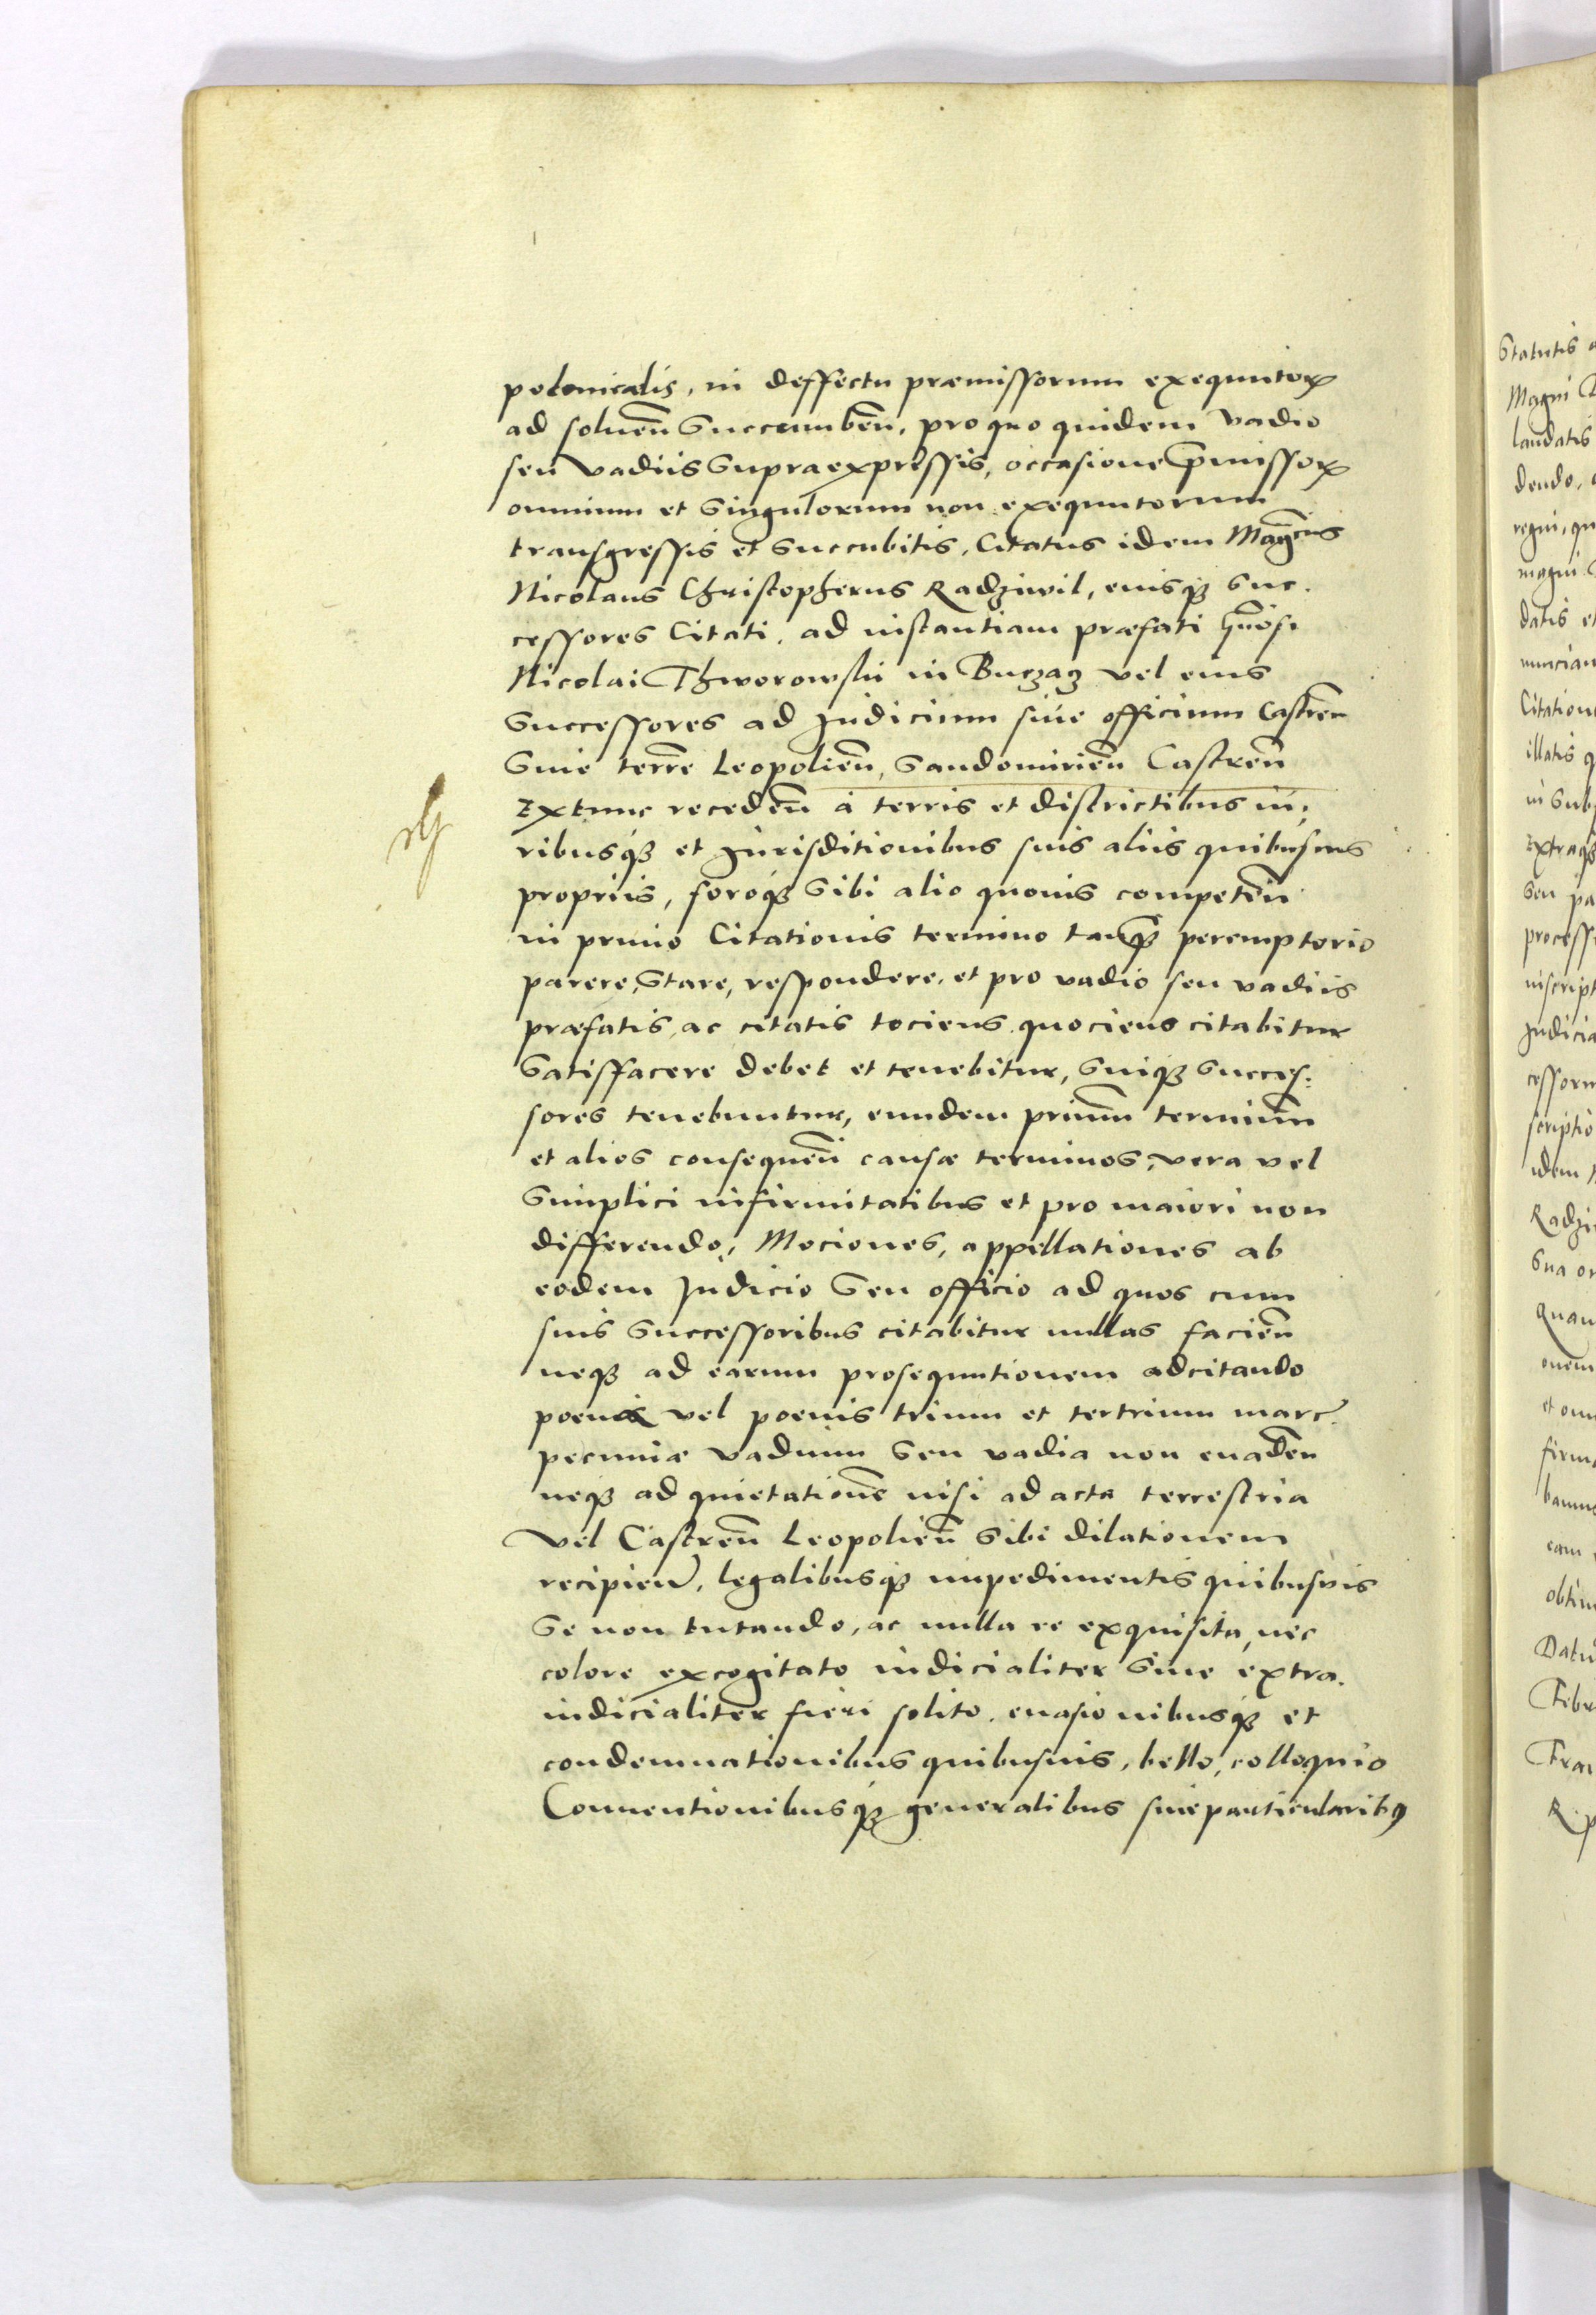 polonicalis, in deffectu præmissorum exequutorꝝ
ad soluen̄ Succumben̄, pro quo quidem vadio
seu vadiis Supra expressis, occasione p̄missorꝝ
omnium et Singulorum non exequutorum
transgressis et Succubitis, Citatus idem Mag̅cus
Nicolaus Christopherus Radziwil, eiusqꝫ Suc.
cessores Citati, ad instantiam præfati
Nicolai Thworowski in Buczacz vel eius
Successores ad Judicium siue officium Castren̄
Siue terre̅ Leopolien̄, Sandomirien̄ Castren̄
Extunc receden̄ à terris et districtibus iu,
ribusqꝫ et Jurisditionibus suis aliis quibusuis
propriis, foroqꝫ Sibi alio quouis competen̄
in primo Citationis termino tanqꝫ peremptorio
parere, Stare, respondere, et pro vadio seu vadiis
præfatis, ac citatis tociens quociens citabitur
Satisfacere debet et tenebitur, Suiqꝫ Succes:
sores tenebuntur, eundem primu̅ terminu̅
et alios consequen̄ causæ terminos, vera vel
Simplici infirmitatibus et pro maiori non
differendo, Mociones, appellationes ab
eodem Judicio Seu officio ad quos cum
suis Successoribus citabitur nullas facien̄
neqꝫ ad earum prosequutionem adcitando
poenis vel poenis trium et tertrium marc.
pecuniæ vadium Seu vadia non euaden̄
neqꝫ ad quietatione̅ nisi ad acta terrestria
vel Castren̄ Leopolien̄ Sibi dilationem
recipien̄, legalibusqꝫ impedimentis quibusuis
Se non tutando, ac nulla re exquisita, nec
colore excogitato iudicialiter Siue extra.
iudicialiter fieri solito, euasionibusqꝫ et
condemnationibus quibusuis, bello, colloquio
Conuentionibusqꝫ generalibus siue particularibꝰ